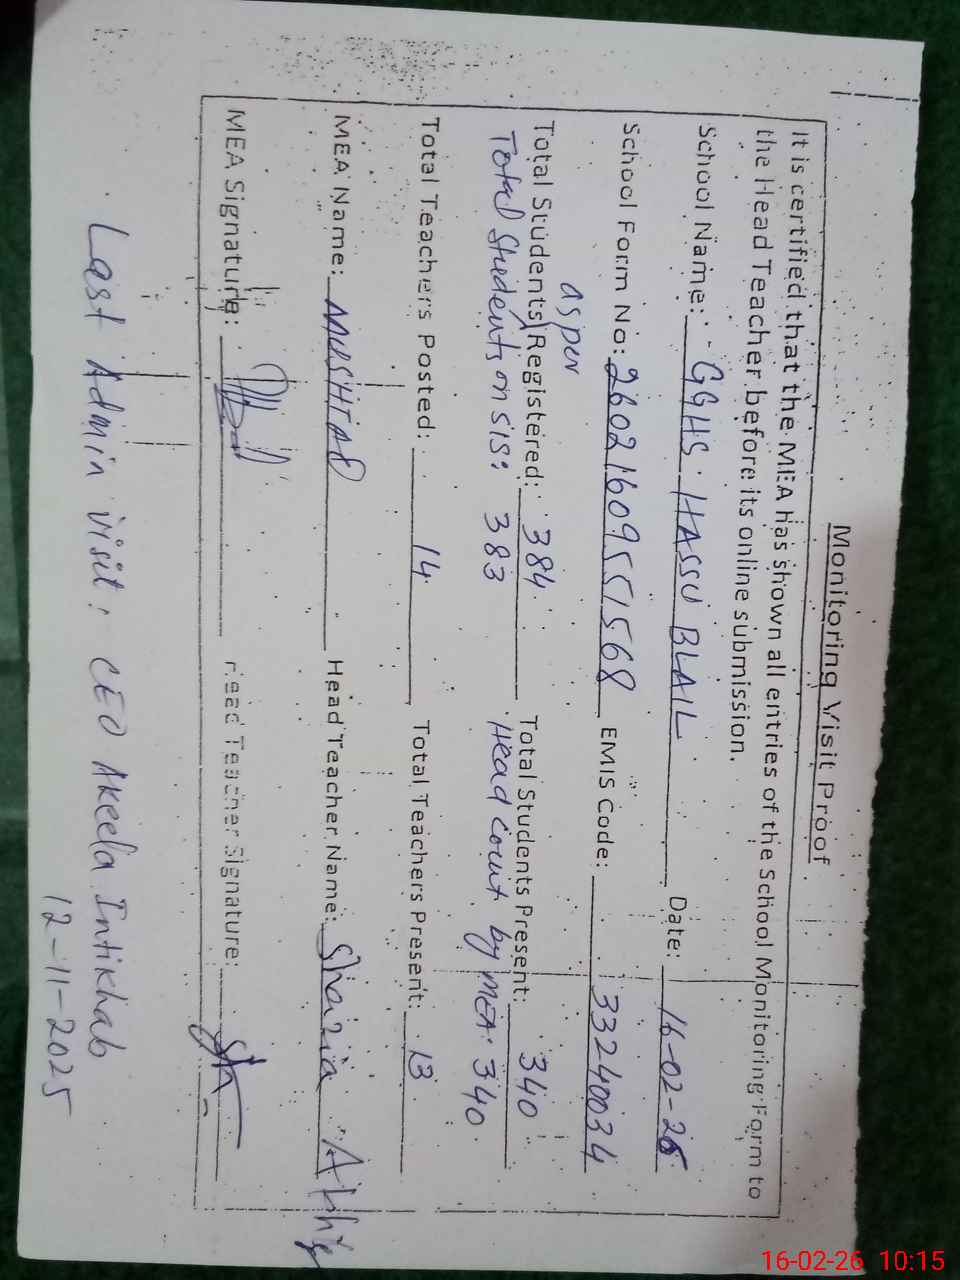 Monitoring Visit Proof
It is certified that the MEA has shown all entries of the School Monitoring Form to
the Head Teacher before its online submission.
School Name: GGHS. HASSU BLAIL Date: 16-02-26
School Form No: 26021609551568 EMIS Code: 33240034
as per
Total Students Registered: 384 Total Students Present: 340
Total Students on SIS: 383 Head Count by MEA: 340.
Total Teachers Posted: 14 Total Teachers Present: 13
MEA Name: MUSHTAQ Head Teacher Name: Shazia
MEA Signature: Head Teacher Signature:
Last Admin visit: CEO Akeela Intikhab
12-11-2025
16-02-26 10:15